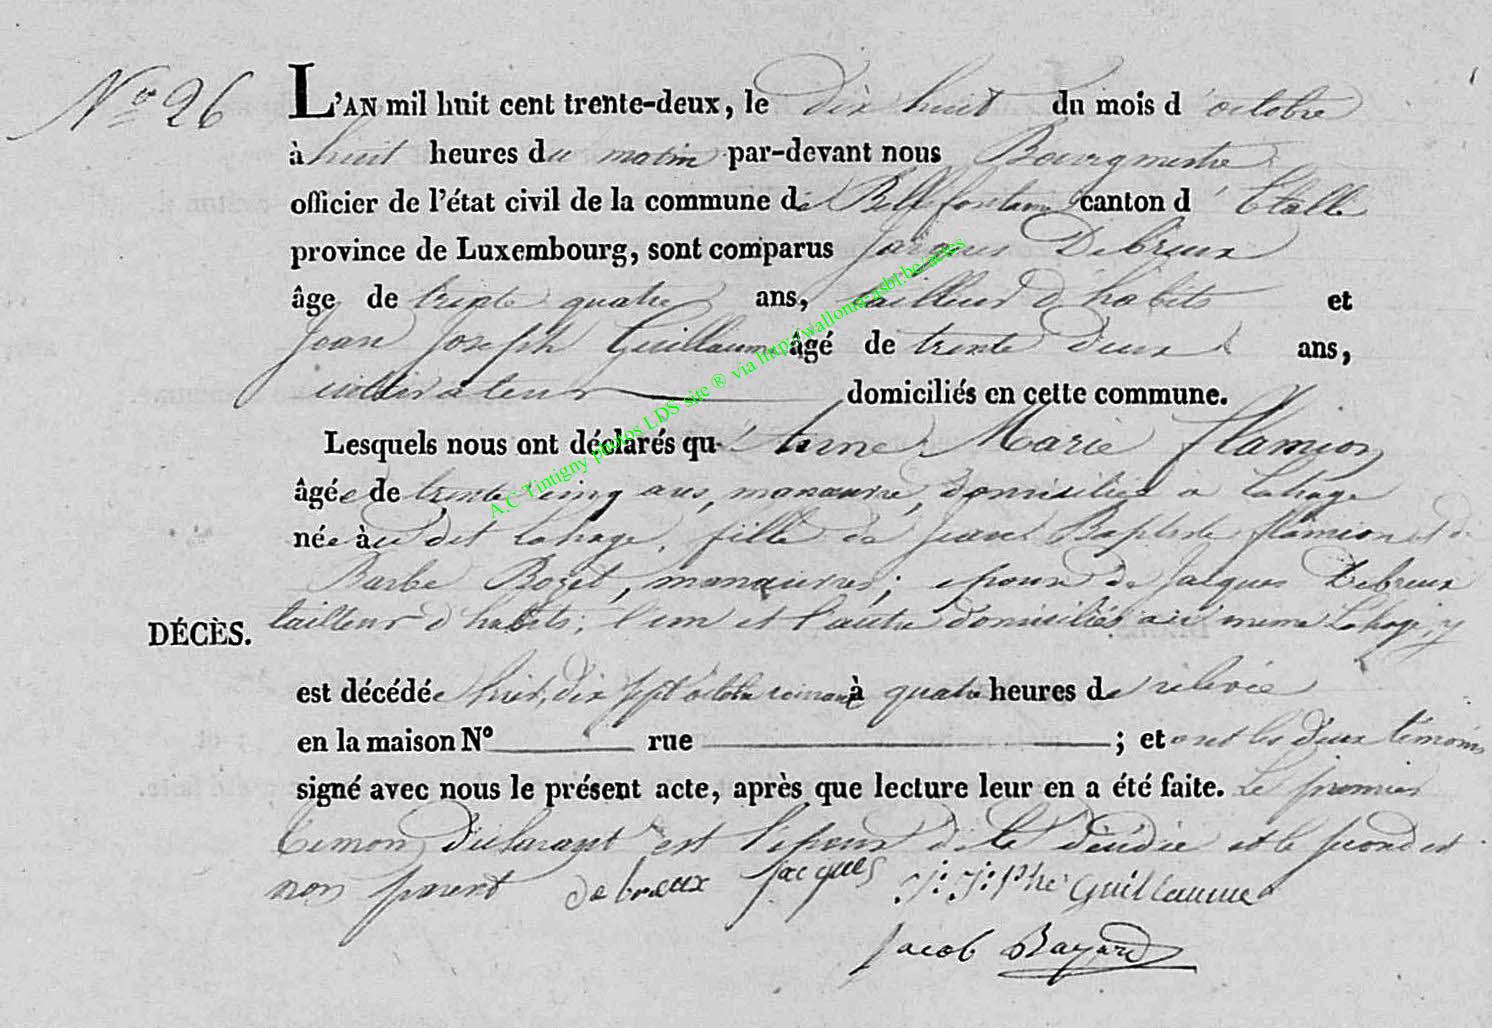 N° 26
L'AN mil huit cent trente-deux, le dix huit du mois d'octobre
à huit heures du matin par-devant nous Bourgmestre
officier de l'état civil de la commune de Bellefontaine canton d'Etalle
province de Luxembourg, sont comparus Jacques Debreux
âge de trente quatre ans, tailleur d'habits et
Jean Joseph Guillaume âgé de trente deux ans,
cultivateur domiciliés en cette commune.
Lesquels nous ont déclarés qu'Anne Marie Flamion
âgée de trente cinq ans, manœuvre, domiciliée a Lahage
née au dit Lahage, fille de Jean Baptiste flamion et de
Barbe Bozet, manœuvres; epouse de Jacques Debreux
tailleur d'habits; l'un et l'autre domiciliés au meme Lahage, y
DÉCÈS.
est décédée hier, dix sept octobre à quatre heures de relevée
en la maison N° rue ; et ont les deux témoins
signé avec nous le présent acte, après que lecture leur en a été faite. Le premier
temoin déclarant est l'epoux de la décédée et le second est
non parent debreux jacques J: J:phe Guillaume
Jacob Bayard
A.C Tintigny photos LDS site ® via http://wallonia.asbl.be/actes